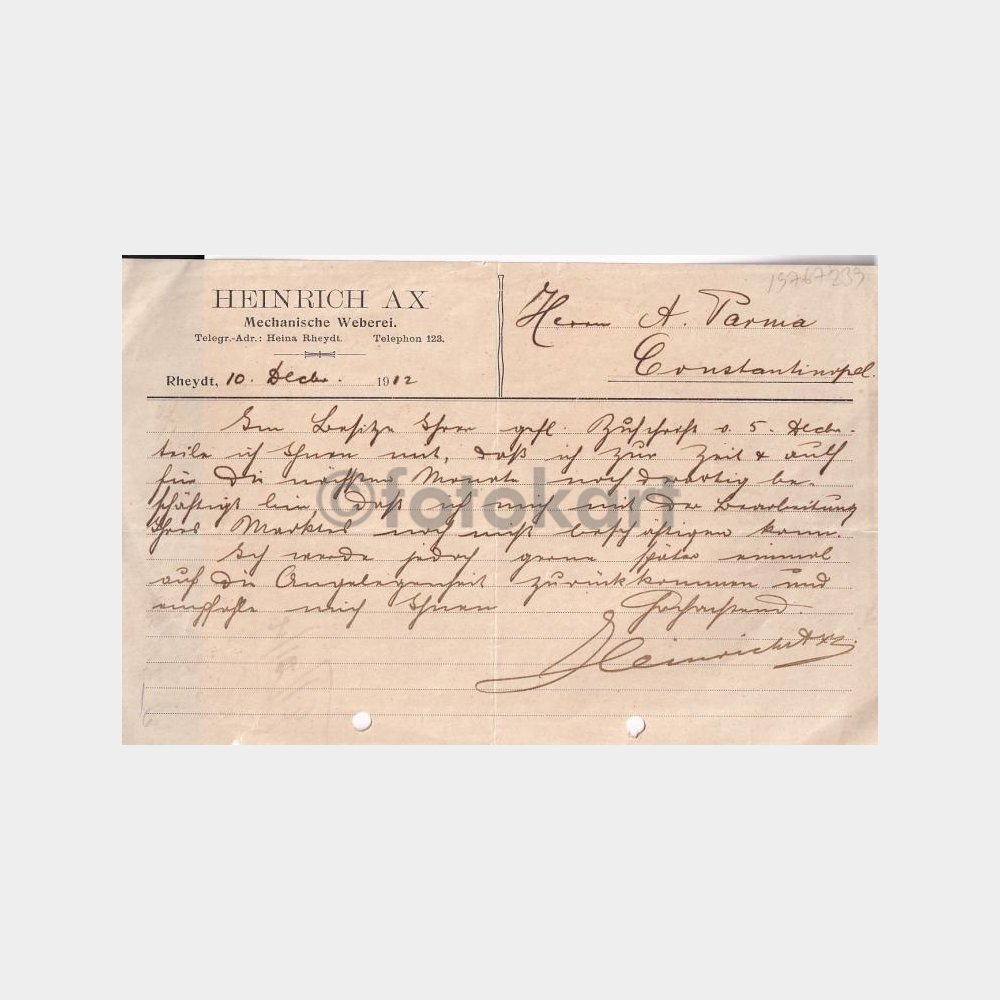 15767233
HEINRICH AX
Mechanische Weberei.
Telegr.-Adr.: Heina Rheydt. Telephon 123.
Rheydt, 10. Decbr. 1912
Herrn A. Parma
Constantinopel.
Im Besitze Ihrer gefl. Zuschrift v. 5. Decbr.
teile ich Ihnen mit, daß ich zur Zeit & auch
für die nächsten Monate noch derartig be-
schäftigt bin, daß ich mich mit der Bearbeitung
Ihres Marktes noch nicht beschäftigen kann.
Ich werde jedoch gerne später einmal
auf die Angelegenheit zurückkommen und
empfehle mich Ihnen Hochachtend.
Heinrich Ax
©fotokart